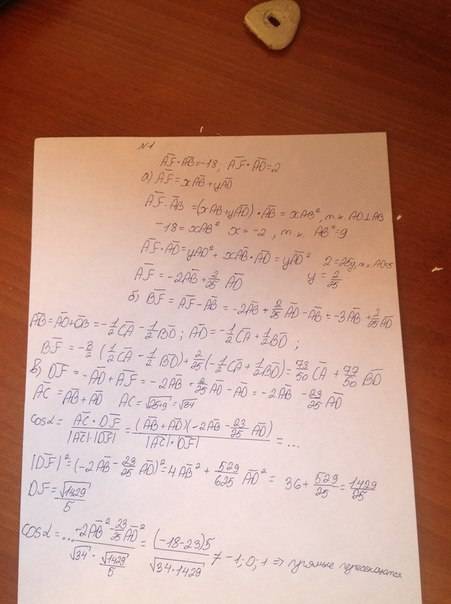 N1
A̅F̅·A̅B̅=-18; A̅F̅·A̅D̅=2
а) A̅F̅=xA̅B̅+yA̅D̅
A̅F̅·A̅B̅=(xA̅B̅+yA̅D̅)·A̅B̅=xAB², т.к. AD⊥AB
-18=xAB² x=-2, т.к. AB²=9
A̅F̅·A̅D̅=yAD²+xA̅B̅·A̅D̅=yA̅D̅² 2=25y, т.к. AD=5
A̅F̅=-2A̅B̅+2/25 A̅D̅ y=2/25
б) B̅F̅=A̅F̅-A̅B̅=-2A̅B̅+2/25 A̅D̅-A̅B̅=-3A̅B̅+2/25 A̅D̅
A̅B̅=A̅O̅+O̅B̅=-1/2 C̅A̅-1/2 B̅D̅; A̅D̅=-1/2 C̅A̅+1/2 B̅D̅;
B̅F̅=-3(-1/2 C̅A̅-1/2 B̅D̅)+2/25(-1/2 C̅A̅+1/2 B̅D̅)=73/50 C̅A̅+77/50 B̅D̅
в) D̅F̅=-A̅D̅+A̅F̅=-2A̅B̅+2/25 A̅D̅-A̅D̅=-2A̅B̅-23/25 A̅D̅
A̅C̅=A̅B̅+A̅D̅ AC=√25+9=√34
cosα=A̅C̅·D̅F̅/|A̅C̅|·|D̅F̅|=(A̅B̅+A̅D̅)(-2A̅B̅-23/25 A̅D̅)/|A̅C̅|·|D̅F̅|=...
|D̅F̅|²=(-2A̅B̅-23/25 A̅D̅)²=4A̅B̅²+529/625 A̅D̅²=36+529/25=1429/25
DF=√1429/5
cosα=...-2A̅B̅²-23/25 A̅D̅²/√34·√1429/5=(-18-23)5/√34·1429≠-1;0;1 => прямые пересекаются